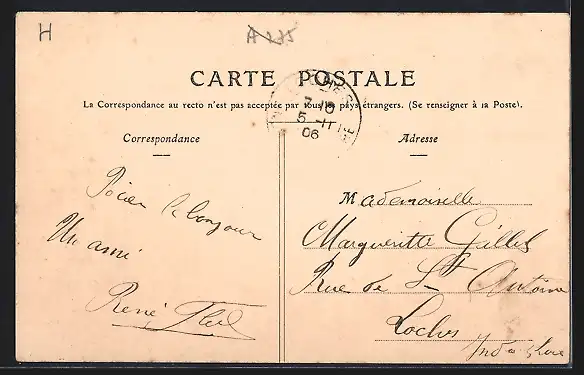 H
A 235
CARTE POSTALE
La Correspondance au recto n'est pas acceptée par tous le pays étrangers. (Se renseigner à la Poste).
Correspondance
Adresse
5 -11
06
le bonjour
Un ami
René
Mademoiselle
Margueritte Gillet
Rue de St Antoine
Loches
Indre